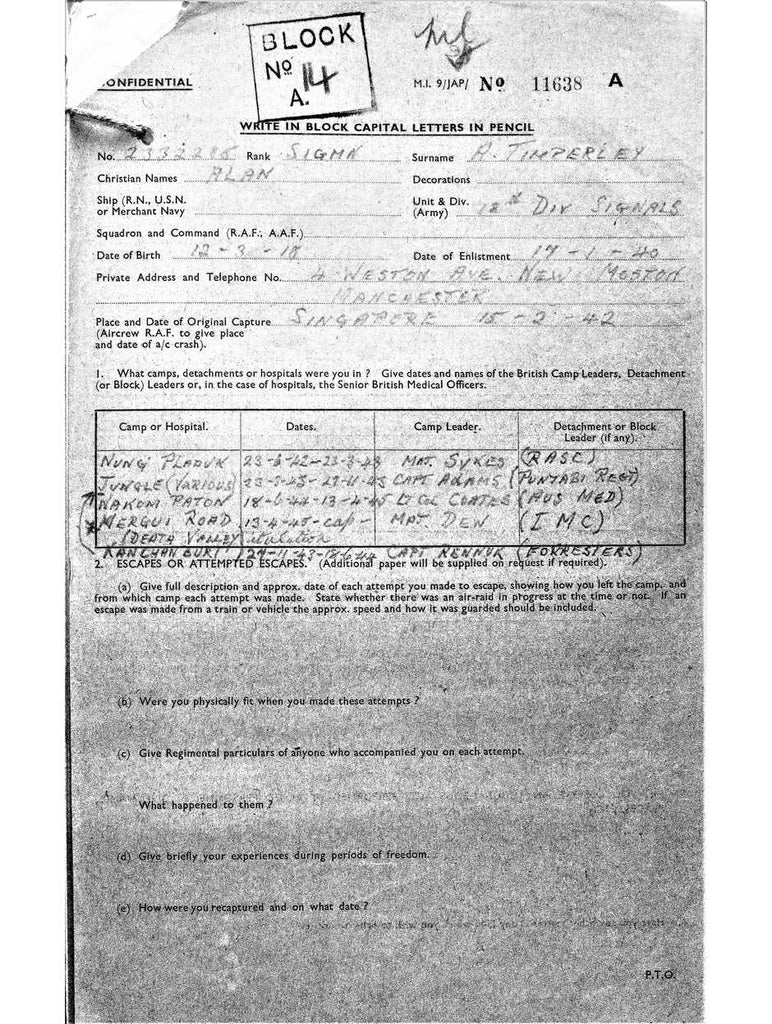 BLOCK
No 14
A.
CONFIDENTIAL
M.I. 9/JAP/ No 11638 A
WRITE IN BLOCK CAPITAL LETTERS IN PENCIL
No. 2332286 Rank SIGMN Surname A. TIMPERLEY
Christian Names ALAN Decorations
Ship (R.N., U.S.N. or Merchant Navy Unit & Div. (Army) 18th DIV SIGNALS
Squadron and Command (R.A.F., A.A.F.)
Date of Birth 12-3-18 Date of Enlistment 17-1-40
Private Address and Telephone No. 4 WESTON AVE. NEW MOSTON
MANCHESTER
Place and Date of Original Capture SINGAPORE 15-2-42
(Aircrew R.A.F. to give place
and date of a/c crash).
1. What camps, detachments or hospitals were you in ? Give dates and names of the British Camp Leaders, Detachment
(or Block) Leaders or, in the case of hospitals, the Senior British Medical Officers.
Camp or Hospital. Dates. Camp Leader. Detachment or Block Leader (if any).
NUNG PLADUK 23-6-42-23-3-43 MAJ. SYKES (RASC)
JUNGLE (VARIOUS) 23-3-43-27-11-43 CAPT ADAMS (PUNJABI REGT)
NAKOM PATON 18-6-44-13-4-45 LT COL COATES (AUS MED)
MERGUI ROAD 13-4-45-cap- MAJ. DEW (IMC)
(DEATH VALLEY) itulation
KANCHANBURI 27-11-43-18-6-44 CAPT (FORRESTERS)
2. ESCAPES OR ATTEMPTED ESCAPES. (Additional paper will be supplied on request if required).
(a) Give full description and approx. date of each attempt you made to escape, showing how you left the camp, and
from which camp each attempt was made. State whether there was an air-raid in progress at the time or not. If an
escape was made from a train or vehicle the approx. speed and how it was guarded should be included.
(b) Were you physically fit when you made these attempts ?
(c) Give Regimental particulars of anyone who accompanied you on each attempt.
What happened to them ?
(d) Give briefly your experiences during periods of freedom.
(e) How were you recaptured and on what date ?
P.T.O.